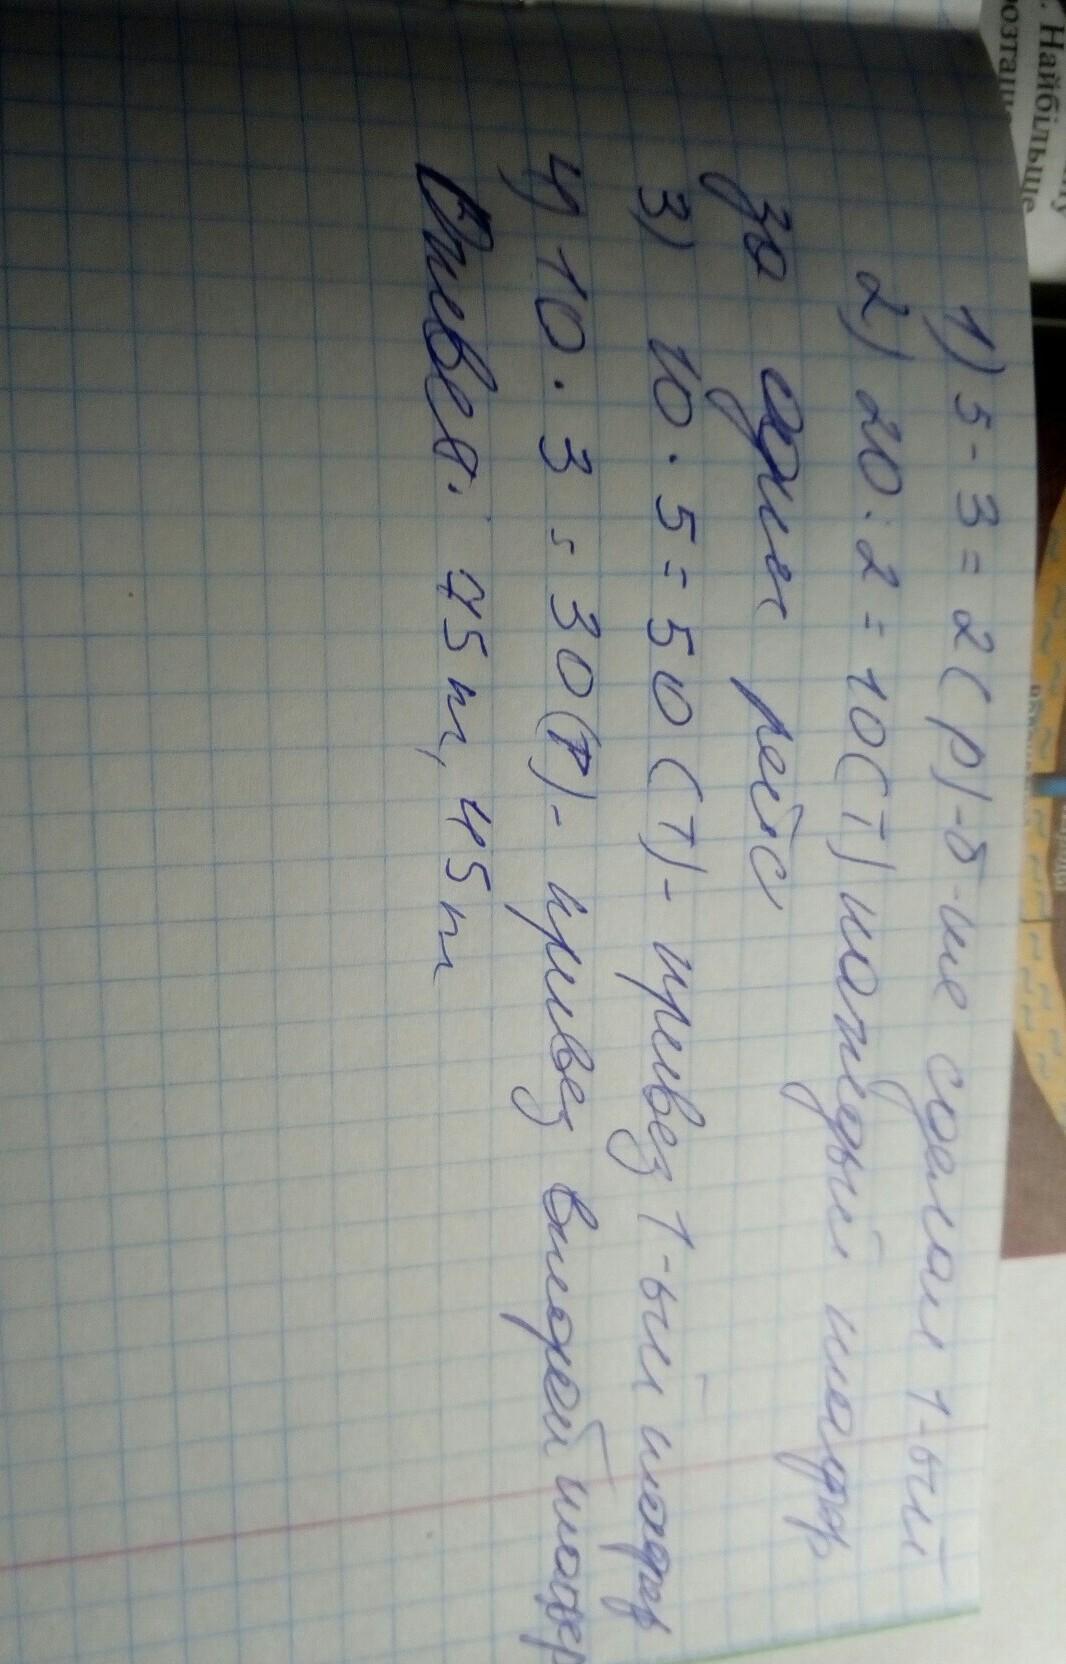 1) 5 - 3 = 2 (р) - б-ше сделал 1-ый
2) 20 : 2 = 10 (т) каждый шофёр
за один рейс
3) 10 . 5 = 50 (т) - привез 1-ый шофер
4) 10 . 3 = 30 (т) - привез второй шофер
Ответ: 45 т, 45 т
. Найбільше